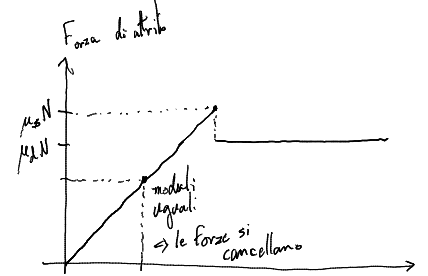 Forza di attrito
μsN
μdN
moduli
uguali
⇔ le forze si
cancellano